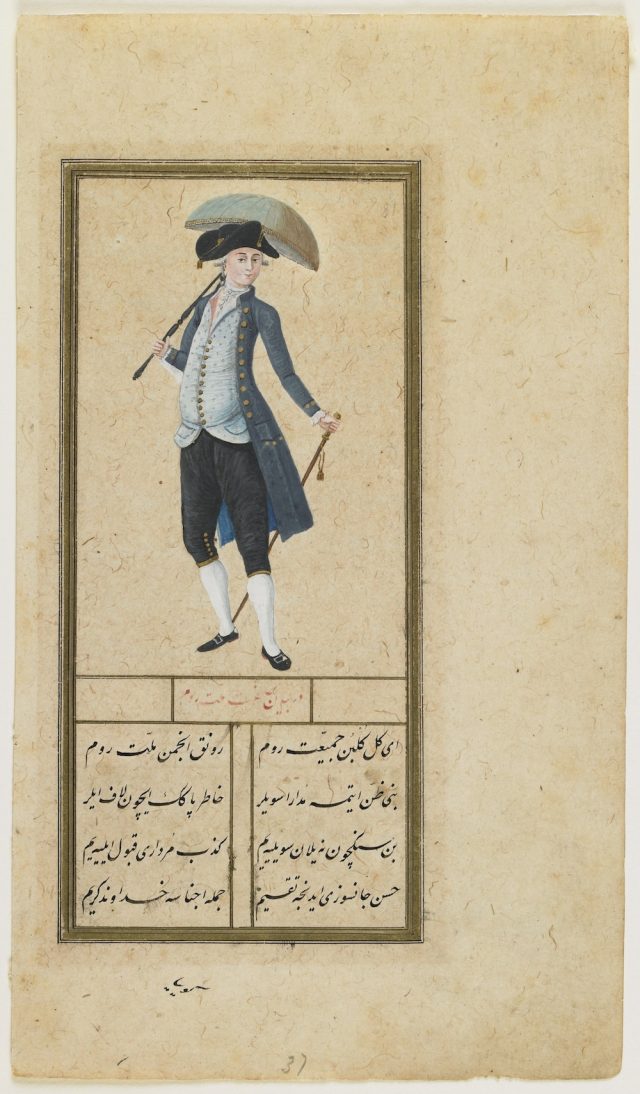 در بیان ملت روم
ای کل کلبن جمعیّت روم رونق انجمن ملّت روم
بنی ظن ایتمه مدارا سویلر خاطر پاکك ایچون لاف ایلر
بن سنکچون نه یلان سویلیه یم کذب مُرداری قبول ایلیه یم
حسن جانسوزی ایدنجه تقسیم جمله اجناسه خداوند کریم
37